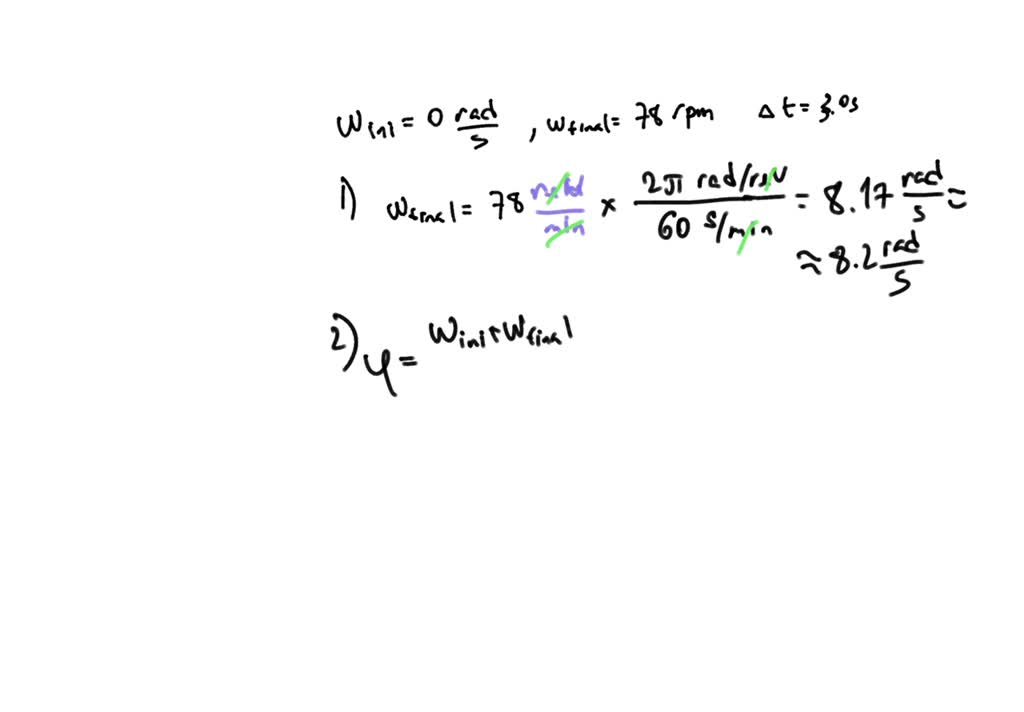 ω ini = 0 rad/s , ω final = 78 rpm Δt = 3.0s
1) ω final = 78 /min × 2π rad/rev / 60 s/min = 8.17 rad/s ≈
≈ 8.2 rad/s
2) φ = ω ini + ω final